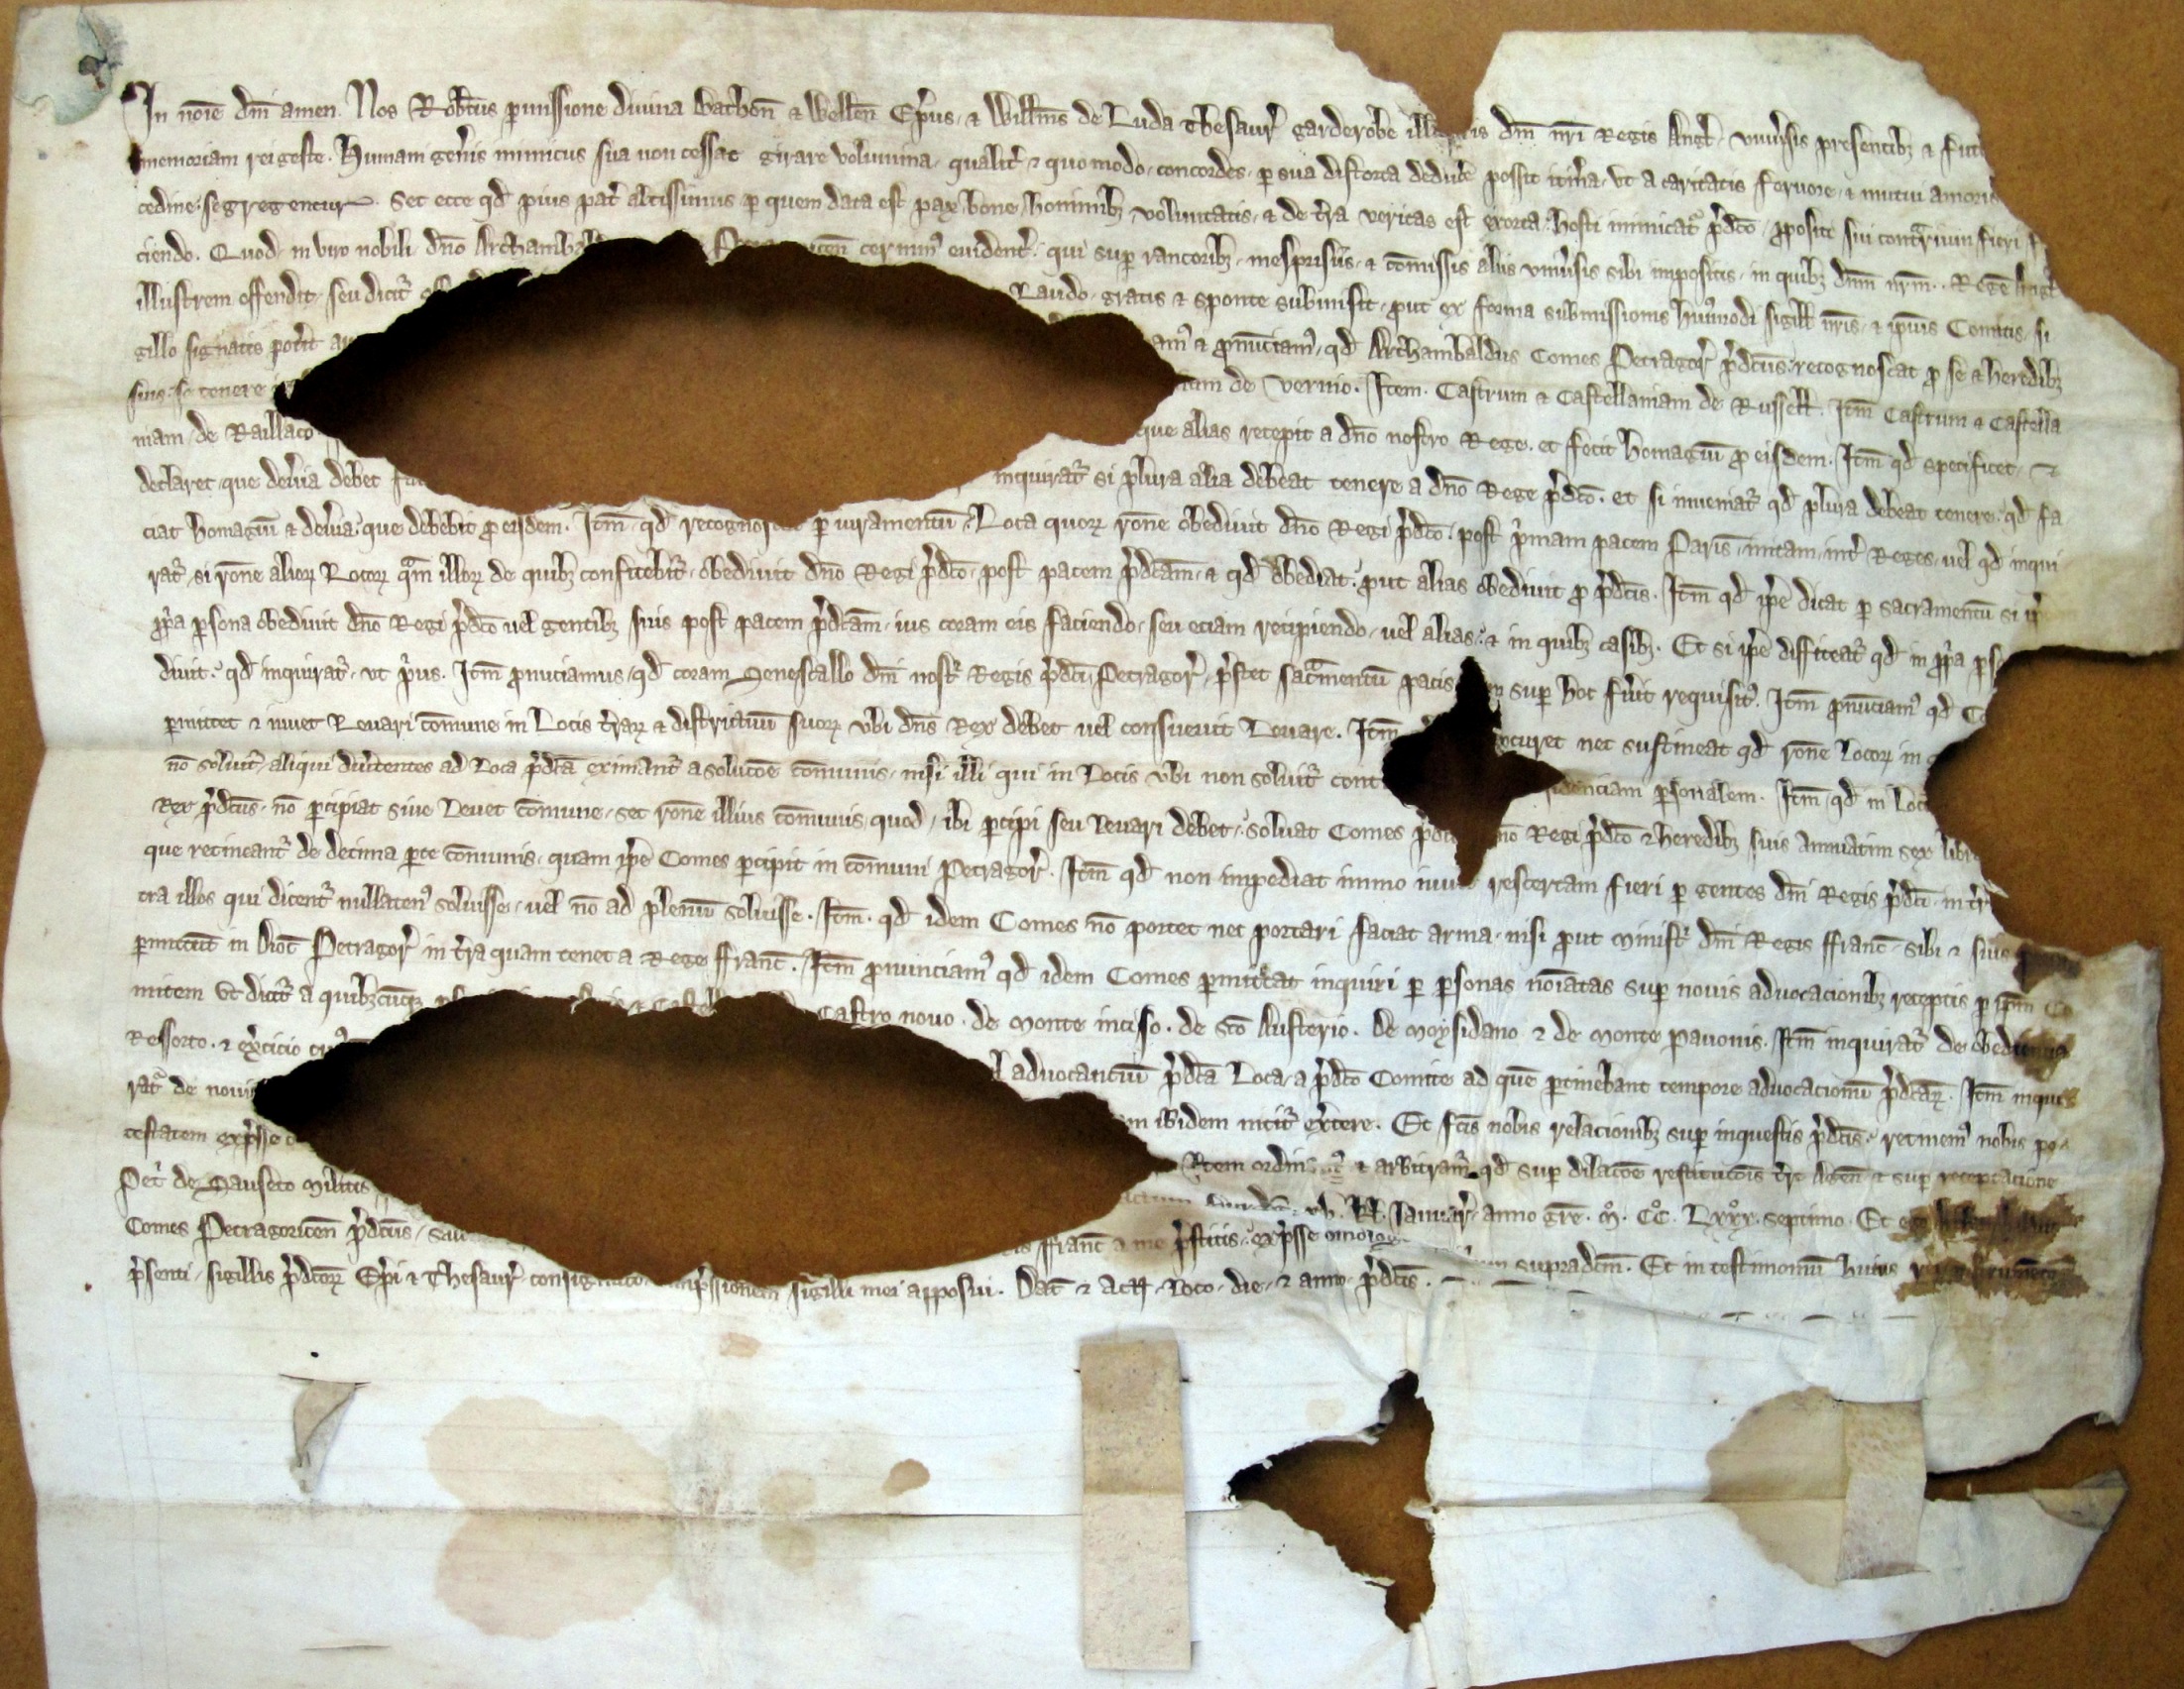 In noīe dn̄i amen. Nos Rob̄tus p̱missione diuina Bathon̄ ⁊ Wellen̄ Ep̄us, ⁊ Will̄ms de Luda Thesaur̄ garderobe ill is dn̄i nr̄i Regis Angl̄ vniu̾sis presentibꝫ ⁊ fut
memoriam rei geste. Humani gen̾is inimicus sua non cessat girare volumina, qualit̾ ⁊ quo modo, concordes, ꝑ sua distorta deduc̾e possit itin̾a, vt a caritatis feruore, ⁊ mutui amoris
cedine, segregentur. Set ecce qd̄ pius pat̾ altissimus ꝑ quem data est pax bone hominibꝫ voluntatis, ⁊ de tr̄a veritas est exorta, hosti inimicat̾ p̄dc̄o, ꝓposit sui contrarium fieri
ciendo. Quod, in viro nobili dn̄o Archambal cen̄ cernim᷒ euident̾, qui sup̱ rancoribꝫ, mesprisur̾, ⁊ cōmissis aliis vniu̾sis sibi impositis, in quibꝫ dn̄m nr̄m, Regē Angl̄
illustrem offendit, seu dicit̾ Laudo, gratis ⁊ sponte submisit, ꝓut ex forma submissionis hui᷒modi sigill̄ nr̄is, ⁊ ip̄ius Comitis, si
gillo signatis pot̾it am᷒ ⁊ ꝓnūciam᷒, qd̄ Archambaldus Comes Petragor̄ p̄dc̄us, recognoscat ꝓ se ⁊ heredibꝫ
suis, se tenere de Vernio. Item. Castrum ⁊ Castellaniam de Russell̄. Itm̄ Castrum ⁊ Castella
niam de Raillaco que alias recepit a dn̄o nostro Rege. et fecit homagiū ꝓ eisdem. Itm̄ qd̄ specificet, ⁊
declaret, que deu̾ia debet inquirat̾ si plura alia debeat tenere a dn̄o Rege p̄dc̄o. et si inueniat̾ qd̄ plura debeat tenere, qd̄ fa
ciat homagiū ⁊ deu̾ia, que debebit ꝓ eisdem. Itm̄ qd̄ recognoscat ꝑ iuramentū, Loca quoꝝ rōne obediuit dn̄o Regi p̄dc̄o, post p̄mam pacem Paris̄, initam, int̾ Reges, vel qd̄ inqui
rat̾, si rōne alioꝝ Locoꝝ qm̄ illoꝝ de quibꝫ confitebit̾, obediuit dn̄o Regi p̄dc̄o, post pacem p̄dc̄am, ⁊ qd̄ obediat, ꝓut alias obediuit ꝓ p̄dc̄is. Itm̄ qd̄ ip̄e dicat ꝑ sacramentū si i
ꝓp̄a ꝑsona obediuit dn̄o Regi p̄dc̄o uel gentibꝫ suis post pacem p̄dc̄am, ius coram eis faciendo, seu eciam recipiendo, uel alias, ⁊ in quibꝫ casibꝫ. Et si ip̄e diffiteat̾ qd̄ in ꝓp̄a ꝑs
diuit, qd̄ inquirat̾, vt p̾us. Itm̄ ꝓnuciamus, qd̄ coram Senescallo dn̄i nost̾ Regis p̄dc̄i, Petragor̄, p̄stet sac̾mentū pacis sup̱ hoc fu̾it requisit᷒. Itm̄ ꝓnūciam᷒ qd̄ Co
ꝑmittet ⁊ iuuet Leuari cōmune in Locis tr̄aꝝ ⁊ districtuū suoꝝ vbi dn̄s Rex debet uel consueuit Leuare. Itm̄ curet nec sustineat qd̄ rōne locoꝝ in
nō soluit̾, aliqui diu̾tentes ad Loca p̄dc̄a eximant̾ a solucōe cōmunis, nisi illi qui in Locis vbi non soluit̾ cont idenciam ꝑsonalem. Itm̄ qd̄ in Loc
Rex p̄dc̄us, nō ꝑcipiat siue Leuet cōmune, set rōne illius cōmunis, quod, ibi ꝑcipi seu Leuari debet, soluat Comes p̄dc̄ no Regi p̄dc̄o ⁊ heredibꝫ suis annuatim sex libr
que retineant̾ de decima ꝑte cōmunis, quam ip̄e Comes ꝑcipit in cōmuni Petragor̄. Itm̄ qd̄ non impediat immo iuuet rescertam fieri ꝑ gentes dn̄i Regis p̄dc̄i, in tr̄
tra illos qui dicent̾ nullaten᷒ soluisse, vel nō ad plenū soluisse. Itm̄. qd̄ idem Comes nō portet nec portari faciat arma, nisi ꝓut minist̾ dn̄i Regis ffranc̄, sibi ⁊ suis
ꝑmittūt in dioc̄ Petragor̄ in tr̄a quam tenet a Rege ffranc̄. Itm̄ ꝓnunciam᷒ qd̄ idem Comes ꝑmittat inquiri ꝑ ꝑsonas noīatas sup̱ nouis aduocacionibꝫ receptis ꝑ ip̄m Co
mitem vt dicit̾ a quibꝫcūqꝫ Castro nouo. de Monte inciso. de Sc̄o Austerio. de Moysidano ⁊ de Monte pauonis. Itm̄ inquirat̾ de obediencia
Ressorto. ⁊ ex̾cicio aduocantiū p̄dc̄a Loca, a p̄dc̄o Comite ad quē ꝑtinebant tempore aduocacionū p̄dc̄aꝝ. Itm̄ inqui
rat̾ de noui ibidem nitit̾ ex̾cere. Et fc̄is nobis relacionibꝫ sup̱ inquestis p̄dc̄is, retinem᷒ nobis po
testatem exp̄sse Item ordin ⁊ arbitram᷒ qd̄ sup̱ dilacōe restitucōis tr̄e Agen̄ ⁊ sup̱ receptacione
Pet̾ de Sauseto militis xv. Kl̄. Januar̄, anno gr̄e. M̊. CC̊. Lxxx̊. septimo. Et ego
Comes Petragoricen̄ p̄dc̄us, sal is ffranc̄ a me p̄stitis, exp̄sse omolog supradc̄m. Et in testimoniū huius
p̄senti, sigillis p̄dc̄oꝝ Ep̄i ⁊ Thesaur̄ consignato imp̄ssionem sigilli mei apposui. Dat̄ ⁊ act̄, Loco, die, ⁊ anno p̄dc̄is.